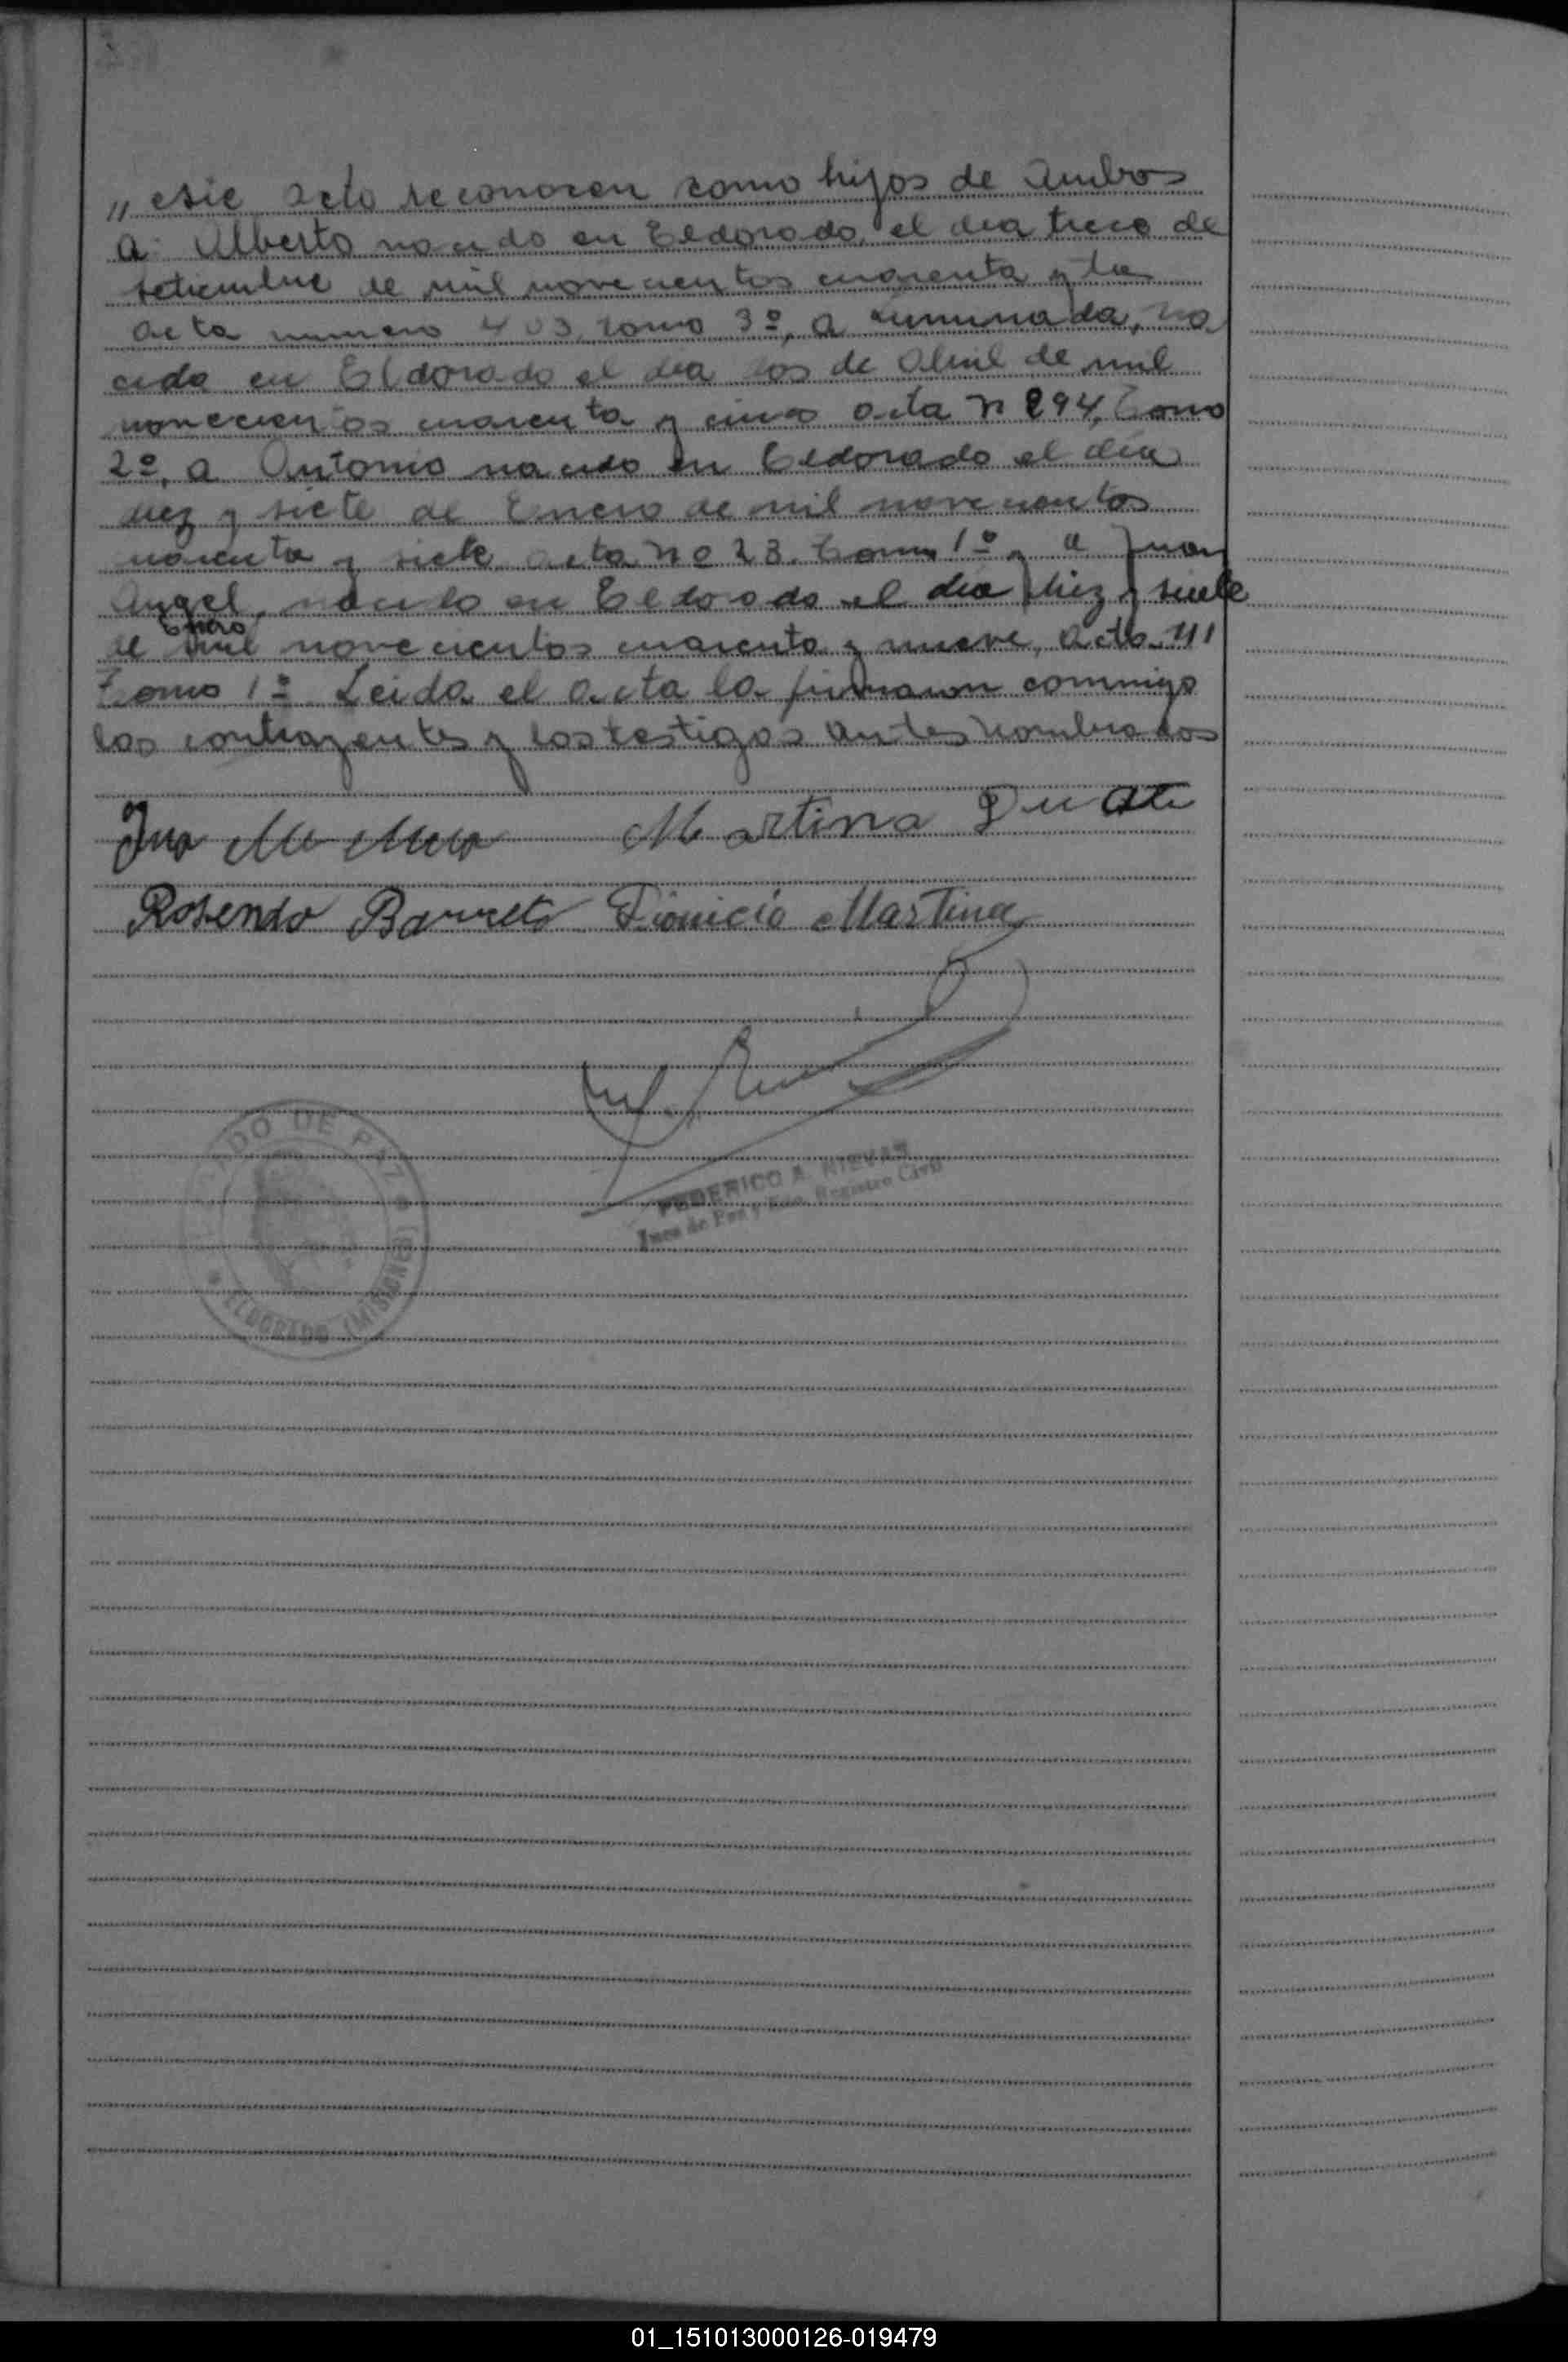 „ este acto reconocen como hijos de ambos
a: Alberto nacido en Eldorado, el dia trece de
setiembre de mil novecientos cuarenta y tres
acta numero 403, tomo 3º, a na
cida en Eldorado el dia dos de Abril de mil
novecientos cuarenta y cinco acta n 294, Tomo
2º, a Antonio nacido en Eldorado el dia
diez y siete de Enero de mil novecientos
cuarenta y siete acta nº 23. Tomo 1º y a Juan
Angel, nacido en Eldorado el dia diez y siete
Enero
de mil novecientos cuarenta y nueve, acta 111
Tomo 1º Leida el acta la firmaron commigo
los contrayentes y los testigos antes nombrados
Martina Duarte
Rosendo Barreto Dionicio Martinez
FEDERICO A. NIEVAS
Juez de Paz y Enc. Registro Civil
DO DE PAZ
ELDORADO (MISIONES)
01_151013000126-019479